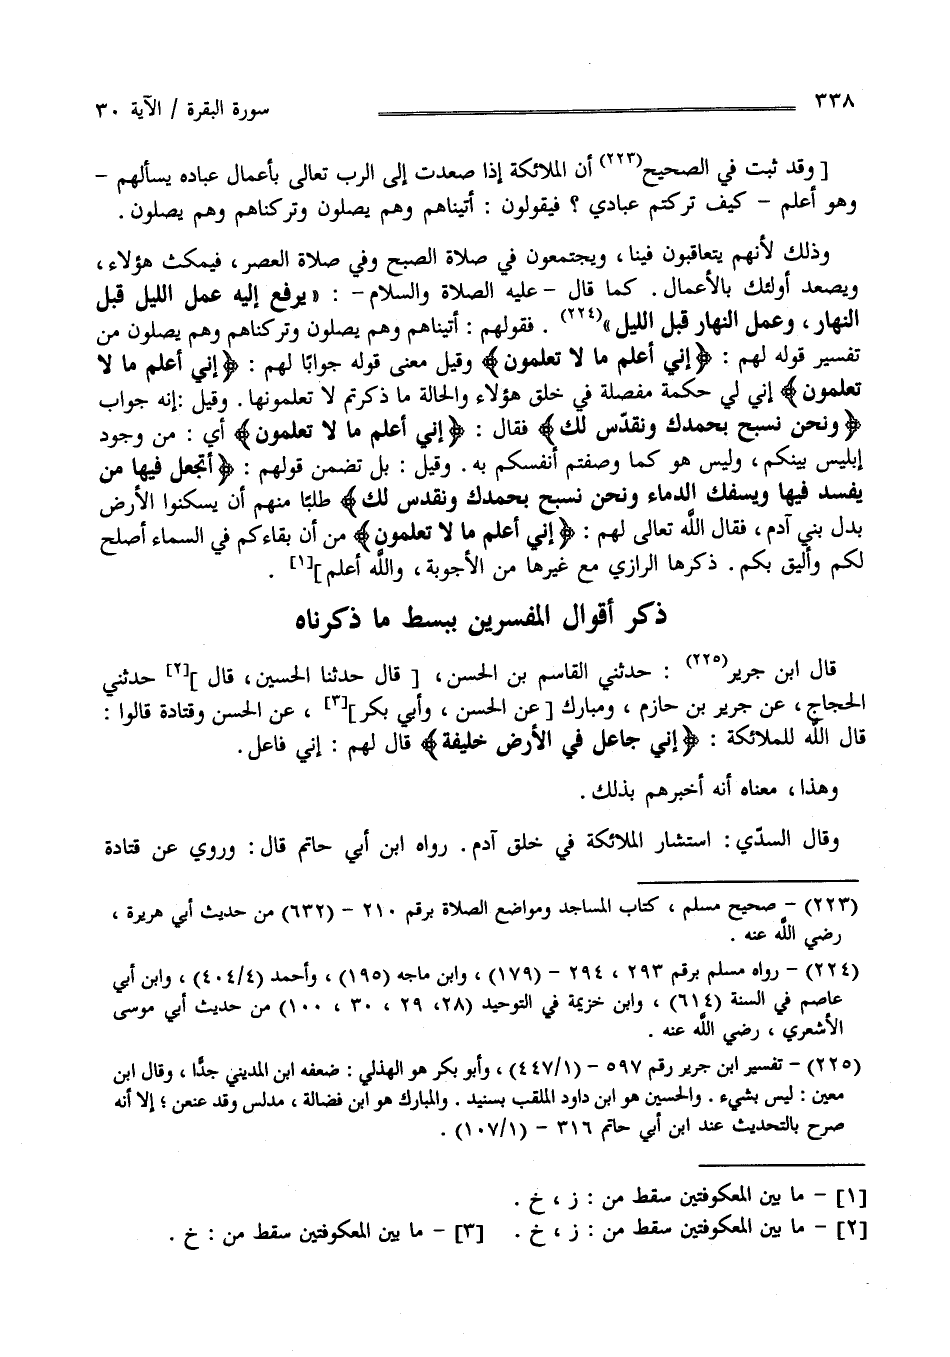 ٣٣٨ سورة البقرة / الآية ٣٠
[ وقد ثبت في الصحيح(٢٢٣) أن الملائكة إذا صعدت إلى الرب تعالى بأعمال عباده يسألهم –
وهو أعلم – كيف تركتم عبادي ؟ فيقولون : أتيناهم وهم يصلون وتركناهم وهم يصلون .
وذلك لأنهم يتعاقبون فينا ، ويجتمعون في صلاة الصبح وفي صلاة العصر ، فيمكث هؤلاء ،
ويصعد أولئك بالأعمال . كما قال – عليه الصلاة والسلام – : « يرفع إليه عمل الليل قبل
النهار ، وعمل النهار قبل الليل »(٢٢٤) . فقولهم : أتيناهم وهم يصلون وتركناهم وهم يصلون من
تفسير قوله لهم : ﴿ إني أعلم ما لا تعلمون ﴾ وقيل معنى قوله جوابًا لهم : ﴿ إني أعلم ما لا
تعلمون ﴾ إني لي حكمة مفصلة في خلق هؤلاء والحالة ما ذكرتم لا تعلمونها . وقيل :إنه جواب
﴿ ونحن نسبح بحمدك ونقدّس لك ﴾ فقال : ﴿ إني أعلم ما لا تعلمون ﴾ أي : من وجود
إبليس بينكم ، وليس هو كما وصفتم أنفسكم به . وقيل : بل تضمن قولهم : ﴿ أتجعل فيها من
يفسد فيها ويسفك الدماء ونحن نسبح بحمدك ونقدس لك ﴾ طلبًا منهم أن يسكنوا الأرض
بدل بني آدم ، فقال اللَّه تعالى لهم : ﴿ إني أعلم ما لا تعلمون ﴾ من أن بقاءكم في السماء أصلح
لكم وأليق بكم . ذكرها الرازي مع غيرها من الأجوبة ، واللَّه أعلم ][١] .
ذكر أقوال المفسرين ببسط ما ذكرناه
قال ابن جرير(٢٢٥) : حدثني القاسم بن الحسن ، [ قال حدثنا الحسين ، قال ][٢] حدثني
الحجاج ، عن جرير بن حازم ، ومبارك [ عن الحسن ، وأبي بكر ][٣] ، عن الحسن وقتادة قالوا :
قال اللَّه للملائكة : ﴿ إني جاعل في الأرض خليفة ﴾ قال لهم : إني فاعل .
وهذا ، معناه أنه أخبرهم بذلك .
وقال السدّي : استشار الملائكة في خلق آدم . رواه ابن أبي حاتم قال : وروي عن قتادة
(٢٢٣) – صحيح مسلم ، كتاب المساجد ومواضع الصلاة برقم ٢١٠ – (٦٣٢) من حديث أبي هريرة ،
رضي اللَّه عنه .
(٢٢٤) – رواه مسلم برقم ٢٩٣ ، ٢٩٤ – (١٧٩) ، وابن ماجه (١٩٥) ، وأحمد (٤٠٤/٤) ، وابن أبي
عاصم في السنة (٦١٤) ، وابن خزيمة في التوحيد (٢٨، ٢٩ ، ٣٠ ، ١٠٠) من حديث أبي موسى
الأشعري ، رضي اللَّه عنه .
(٢٢٥) – تفسير ابن جرير رقم ٥٩٧ – (٤٤٧/١) ، وأبو بكر هو الهذلي : ضعفه ابن المديني جدًّا ، وقال ابن
معين : ليس بشيء . والحسين هو ابن داود الملقب بسنيد . والمبارك هو ابن فضالة ، مدلس وقد عنعن ؛ إلا أنه
صرح بالتحديث عند ابن أبي حاتم ٣١٦ – (١٠٧/١) .
[١] – ما بين المعكوفتين سقط من : ز ، خ .
[٢] – ما بين المعكوفتين سقط من : ز ، خ . [٣] – ما بين المعكوفتين سقط من : خ .